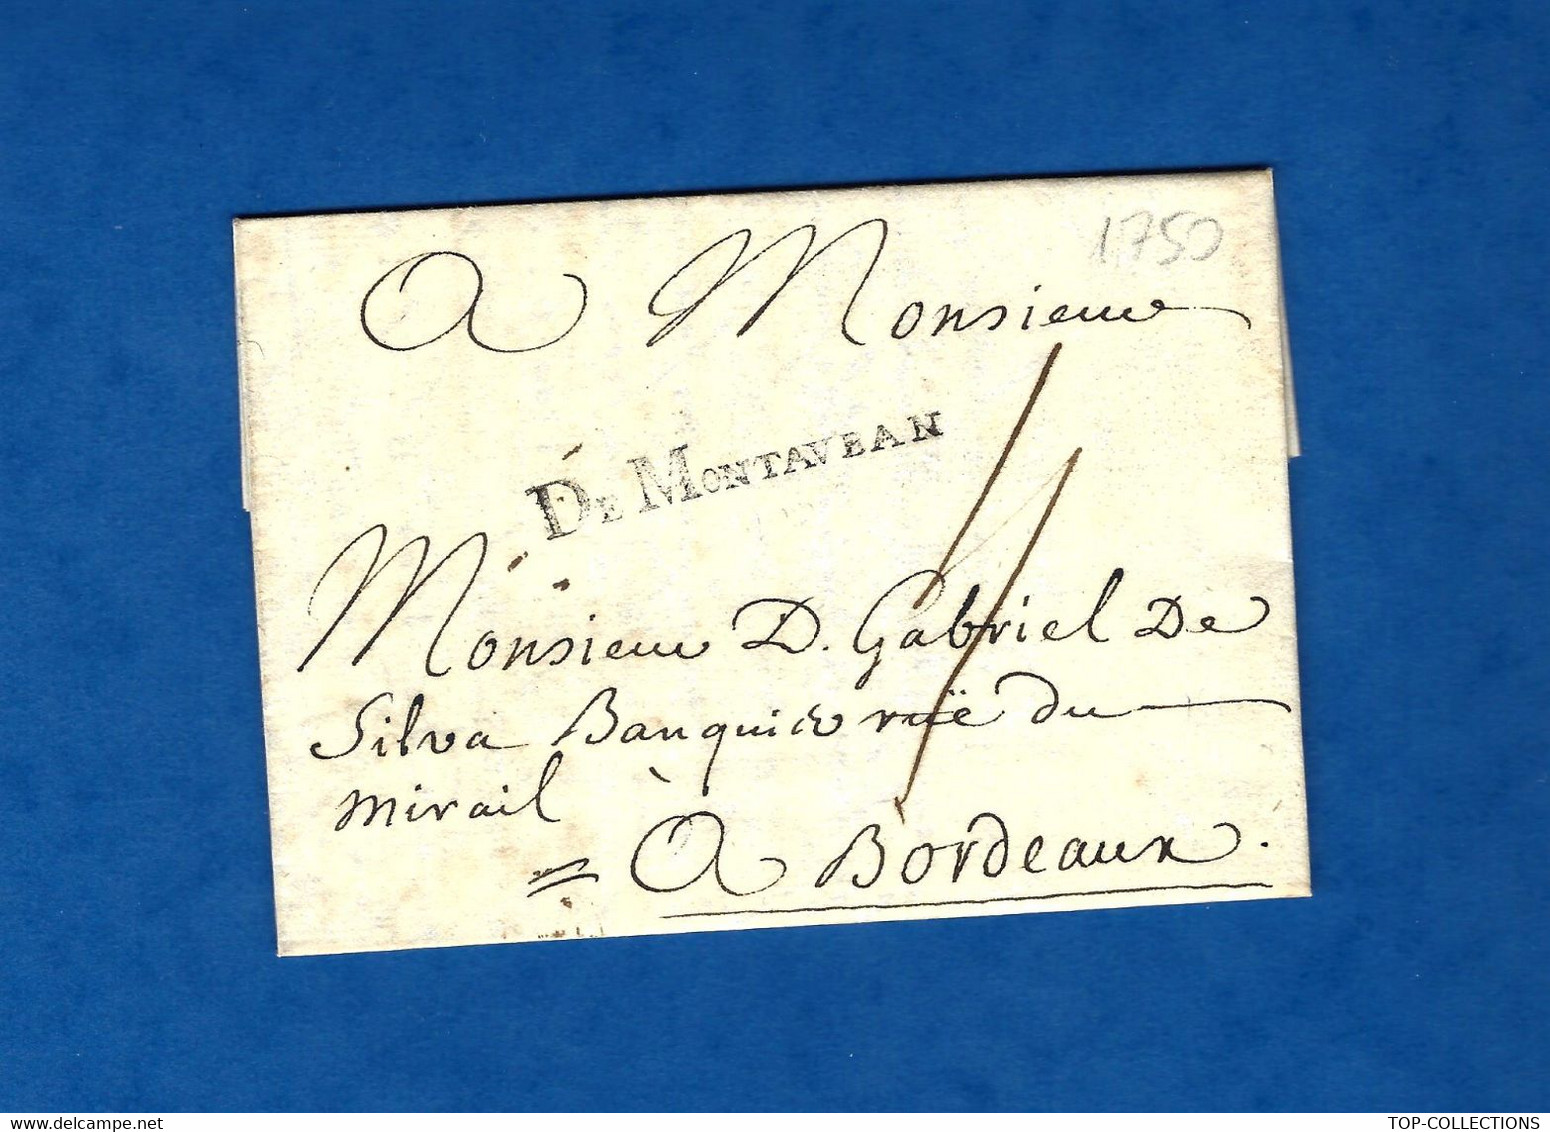 1750
A Monsieur
DE MONTAVBAN
Monsieur D. Gabriel De
Silva Banquier ruë du
mirail
= A Bordeaux.
delcampe.net
TOP-COLLECTIONS